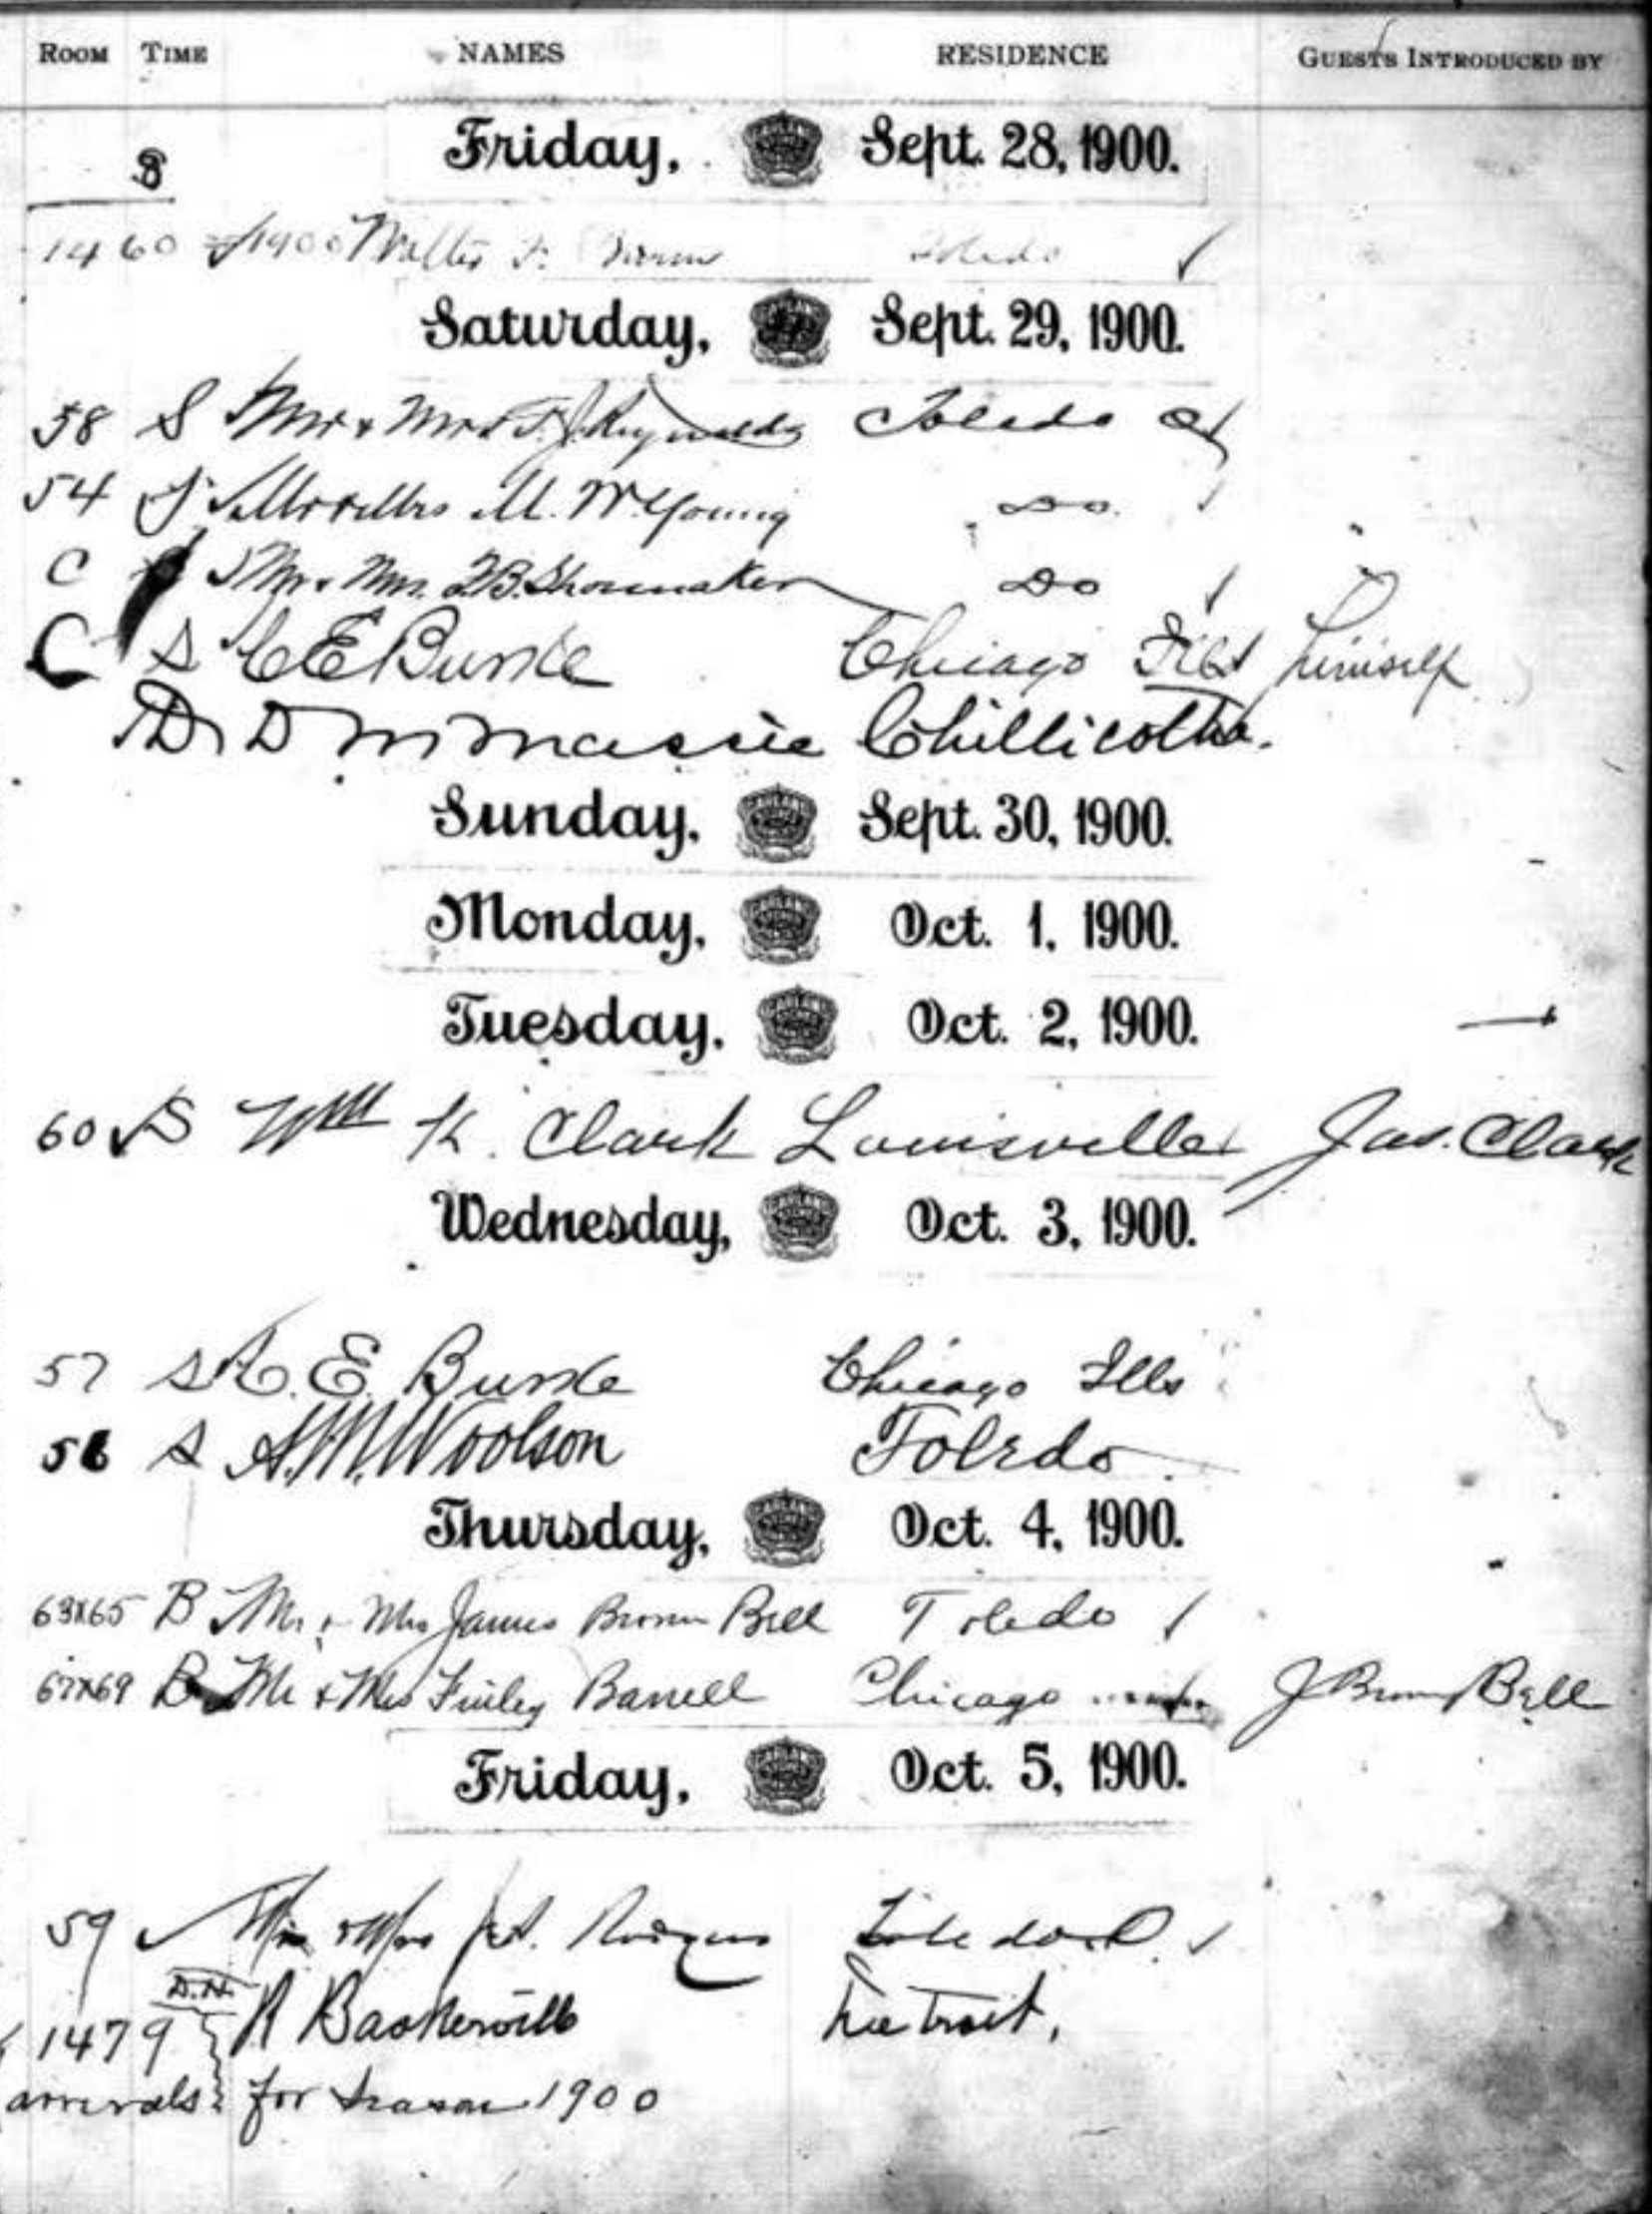 ROOM TIME NAMES RESIDENCE GUESTS INTRODUCED BY
Friday, Sept. 28, 1900.
S
1460 1900 Walter F. Brown Toledo
Saturday, Sept. 29, 1900.
58 S Mr & Mrs F. J. Reynolds Toledo O
54 S Mr & Mrs M. W. Young Do
C Mr & Mrs. F.B. Shoemaker Do
C S C E Burke Chicago Ills himself
D. D m massie Chillicothe.
Sunday, Sept. 30, 1900.
Monday, Oct. 1, 1900.
Tuesday, Oct. 2, 1900.
60 S Wm K. Clark Louisville Jas. Clark
Wednesday, Oct. 3, 1900.
57 S C. E. Burke Chicago Ills
56 S A.M. Woolson Toledo
Thursday, Oct. 4, 1900.
63x65 B Mr & Mrs James Brown Bell Toledo
67x69 B Mr & Mrs Finley Barrell Chicago J Brown Bell
Friday, Oct. 5, 1900.
59 Mr & Mrs Rodgers Toledo O.
D.H. R Baskerville Detroit,
1479
arrivals for season 1900